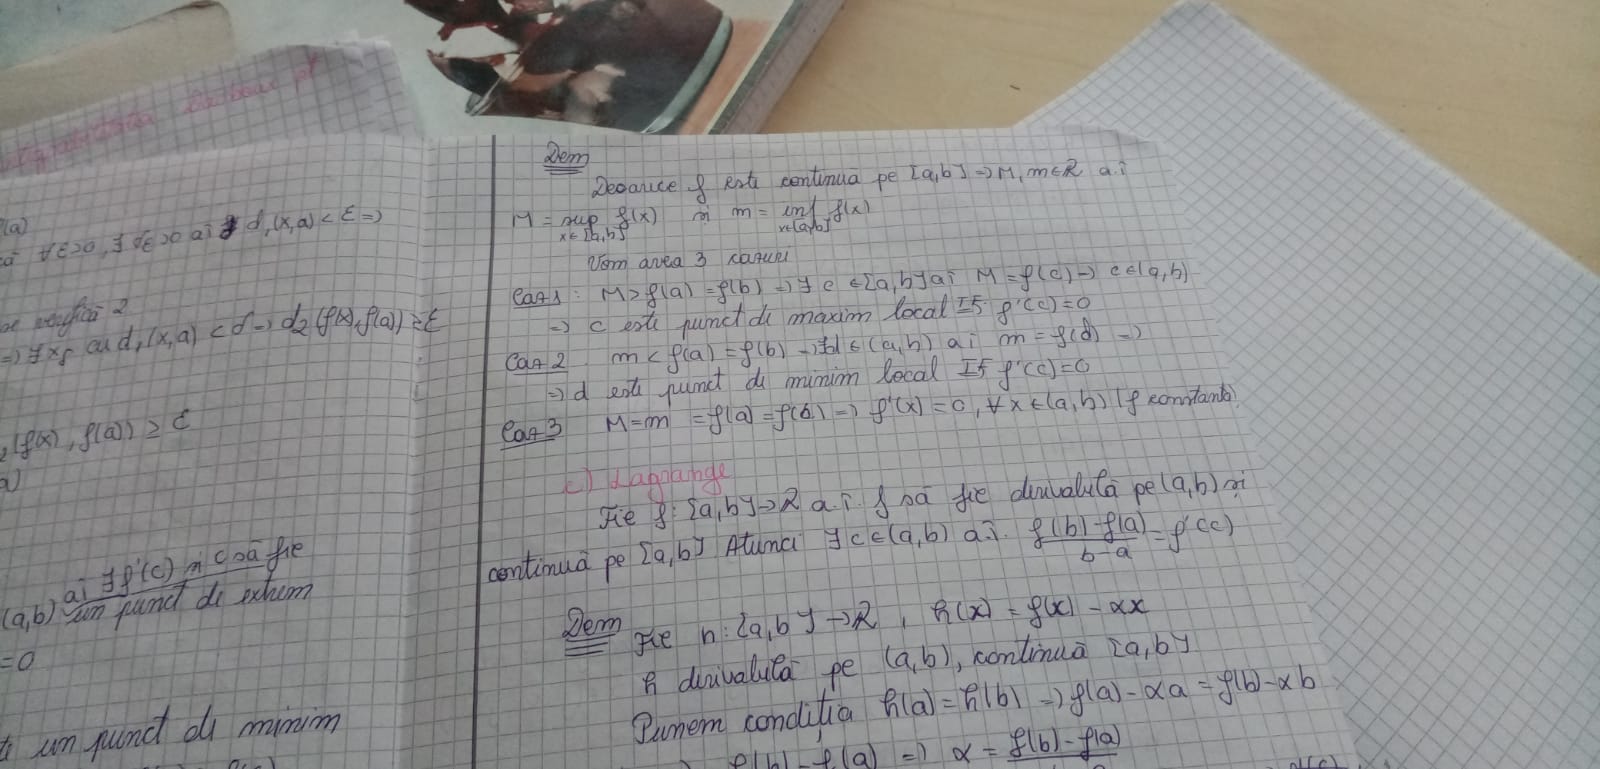 (a)
∀ε>0, ∃ δε>0 aî d₁(x,a) < ε ⇒
se verifică 2
⇒ ∃ xδ cu d₁(x,a) < δ ⇒ d₂(f(x), f(a)) ≥ ε
(f(x), f(a)) ≥ ε
(a,b) aî ∃ f'(c) și c să fie
un punct de extrem
=0
un punct de minim
Dem
Deoarece f este continuă pe [a,b] ⇒ M, m ∈ R a.î
M = sup f(x) și m = inf f(x)
x∈[a,b] x∈[a,b]
Vom avea 3 cazuri
Caz 1: M > f(a) = f(b) ⇒ ∃ c ∈ [a,b] aî M = f(c) ⇒ c ∈ (a,b)
⇒ c este punct de maxim local f'(c)=0
Caz 2 m < f(a) = f(b) ⇒ ∃ d ∈ (a,b) aî m = f(d) ⇒
⇒ d este punct de minim local f'(c)=0
Caz 3 M = m = f(a) = f(b) ⇒ f'(x) = 0, ∀ x ∈ (a,b) (f constantă)
c) Lagrange
Fie f: [a,b] → R a.î. f să fie derivabilă pe (a,b) și
continuă pe [a,b] Atunci ∃ c ∈ (a,b) aî. f(b)-f(a)/b-a = f'(c)
Dem Fie h: [a,b] → R, h(x) = f(x) - αx
h derivabilă pe (a,b), continuă [a,b]
Punem condiția h(a) = h(b) ⇒ f(a) - αa = f(b) - αb
f(b) - f(a) ⇒ α = f(b) - f(a)